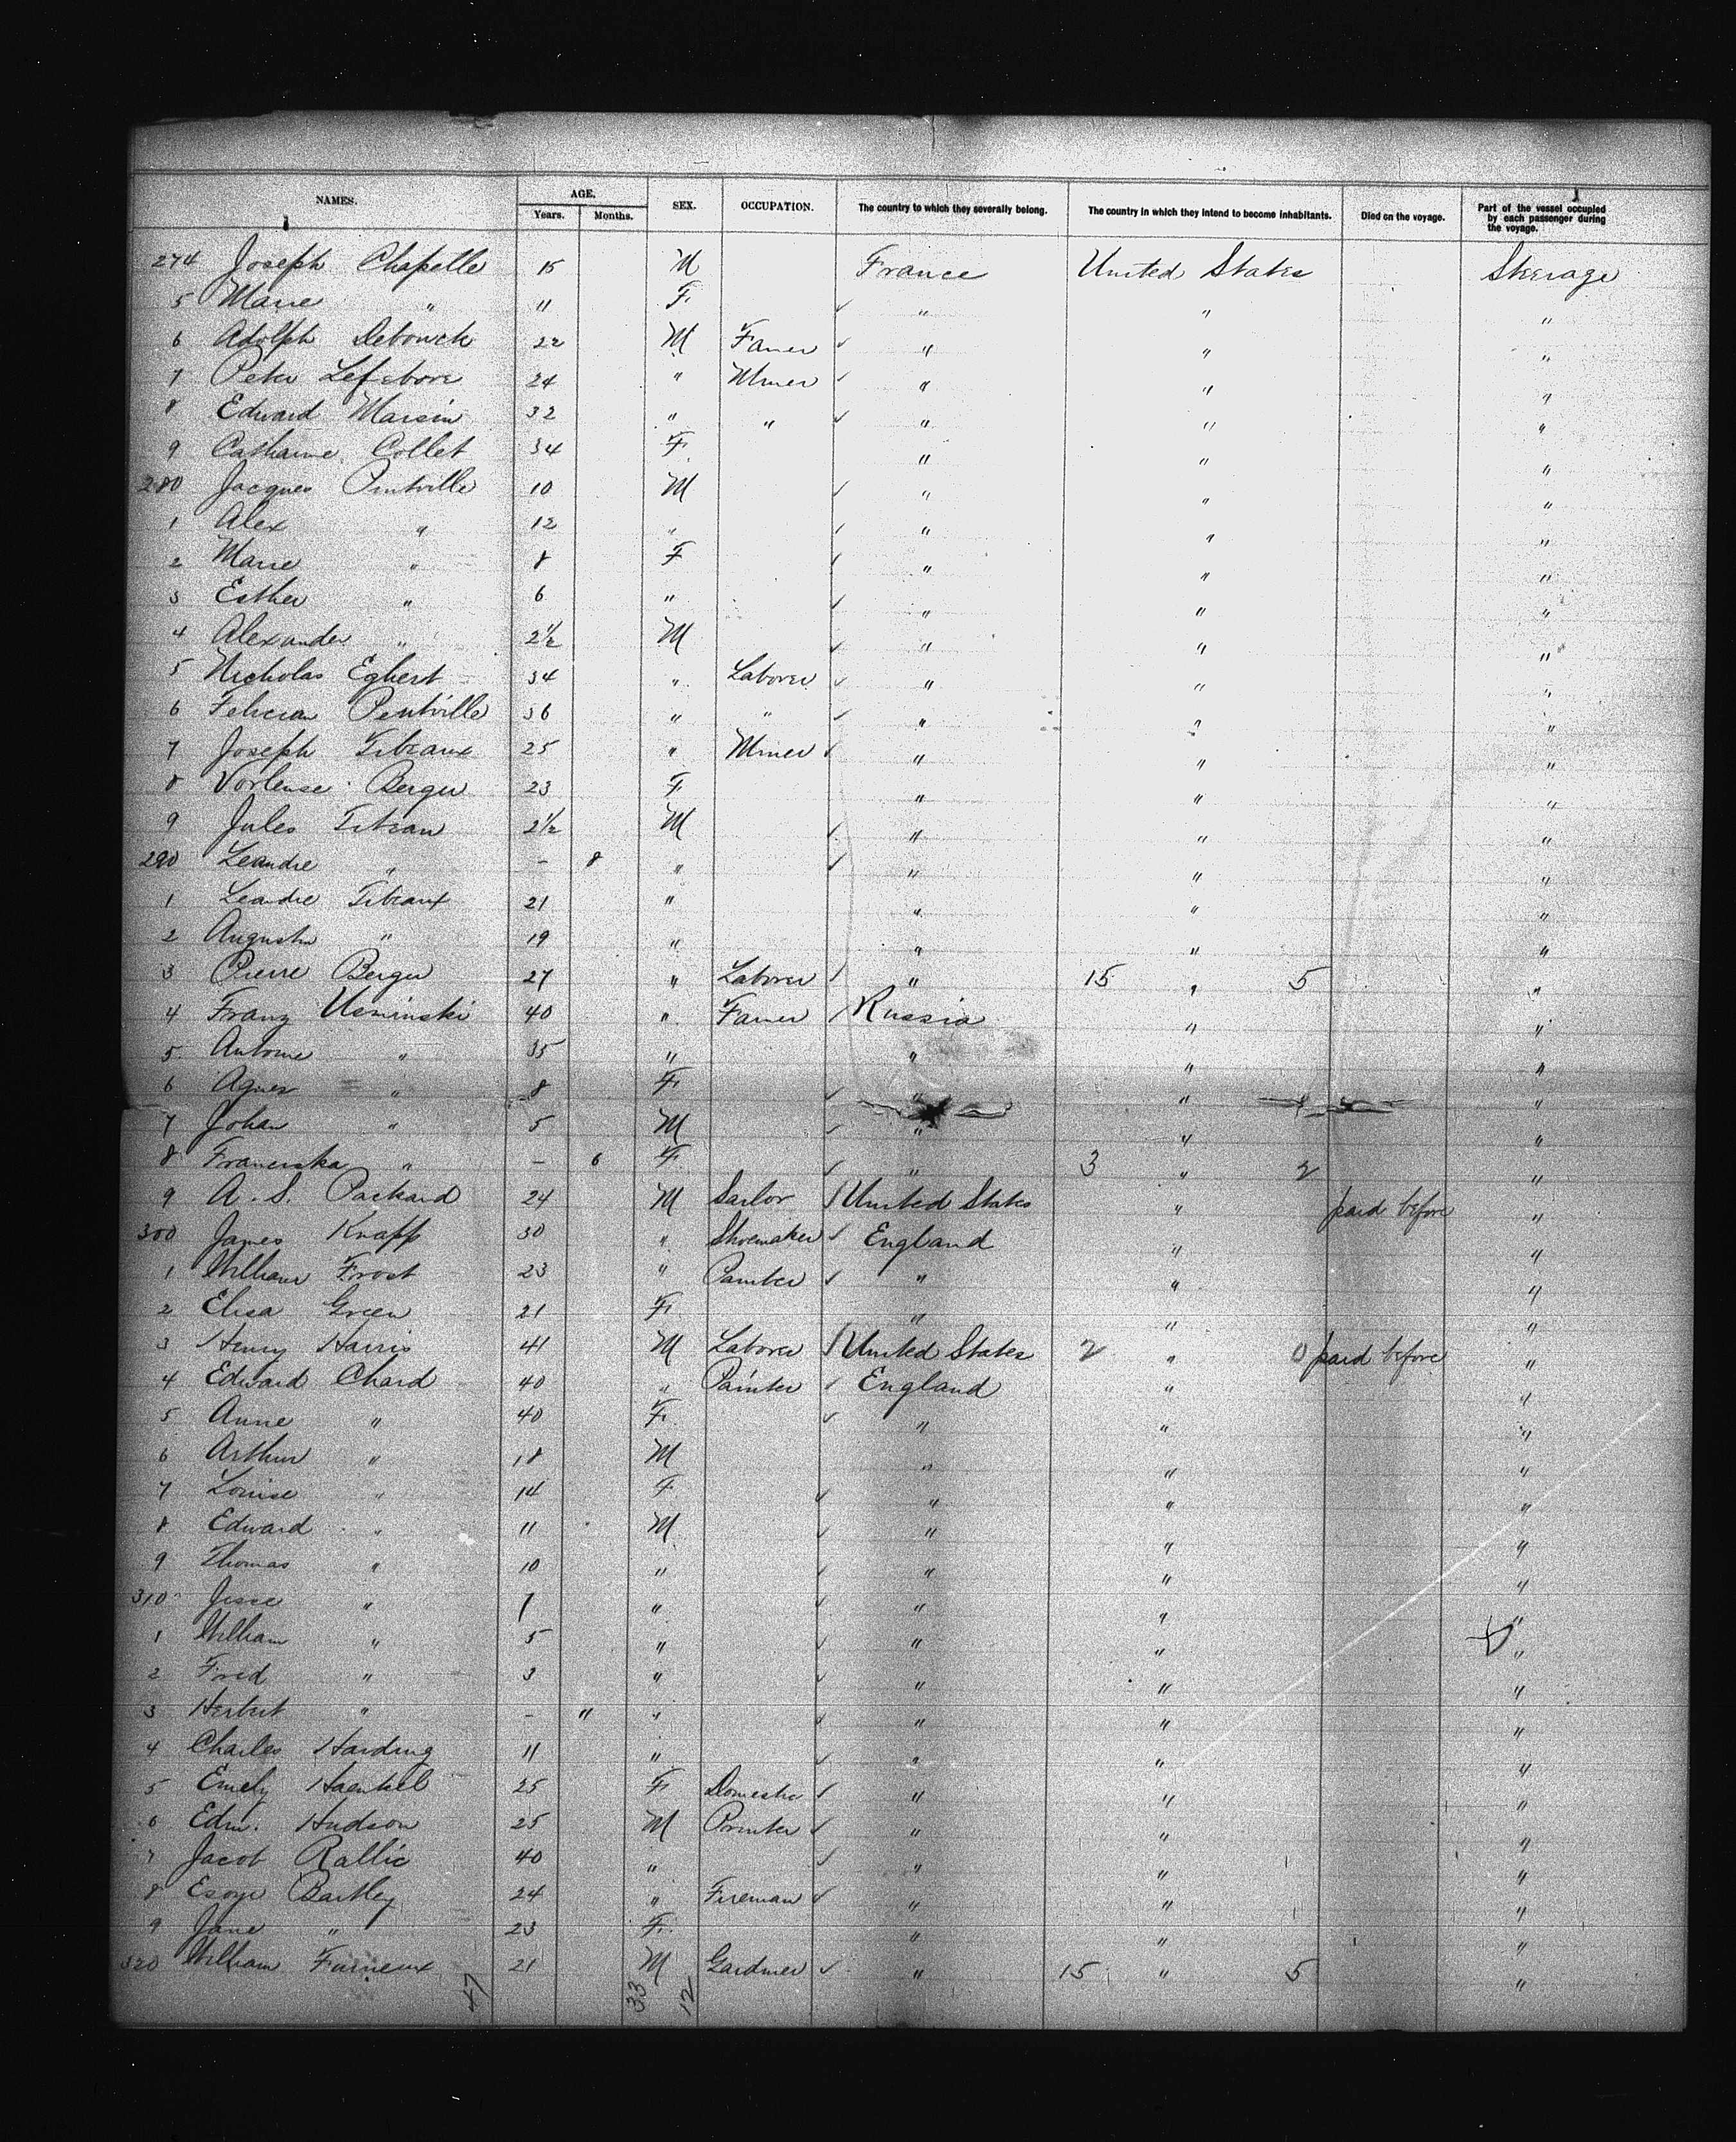 NAMES. AGE. SEX. OCCUPATION. The country to which they severally belong. The country in which they intend to become inhabitants. Died on the voyage. Part of the vessel occupied by each passenger during the voyage.
Years. Months.
274 Joseph Chapelle 15 M France United States Steerage
5 Marie " 11 F. " " "
6 Adolph Debouck 22 M Farmer " " "
7 Peter Lefebore 24 " Miner " " "
8 Edward Marsin 32 " " " " "
9 Catharine Collet 34 F. " " "
280 Jacques Pentville 10 M " " "
1 Alex " 12 " " " "
2 Marie " 8 F " " "
3 Esther " 6 " " " "
4 Alexander " 2½ M " " "
5 Nicholas Egbert 34 " Laborer " " "
6 Felician Pentville 36 " " " " "
7 Joseph Tibeaux 25 " Miner " " "
8 Berger 23 F. " " "
9 Jules 2½ M " " "
290 Leandre " - 8 " " " "
1 Leandre Tibeaux 21 " " " "
2 Augustin " 19 " " " "
3 Pierre Berger 27 " Laborer " 15 " 5 "
4 Franz Usminski 40 " Farmer Russia " "
5 Antonie " 35 " " " "
6 Agnes " 8 F. " " "
7 Johan " 5 M " " "
8 Franciska " - 6 F. " 3 " 2 "
9 A. S. Packard 24 M Sailor United States " paid before "
300 James Knapp 30 " Shoemaker England " "
1 William Frost 23 " Painter " " "
2 Elisa Green 21 F. " " "
3 Henry Harris 41 M Laborer United States 2 " 0 paid before "
4 Edward Chard 40 " Painter England " "
5 Anne " 40 F. " " "
6 Arthur " 18 M " " "
7 Louise " 14 F " " "
8 Edward " 11 M " " "
9 Thomas " 10 " " " "
310 Jesse " 7 " " " "
1 William " 5 " " " "
2 Fred " 3 " " " "
3 Herbert " - 11 " " " "
4 Charles Harding 11 " " " "
5 Emely Haenkel 25 F Domestic " " "
6 Edm. Hudson 25 M Printer " " "
7 Jacob Rallic 40 " " " "
8 Bartley 24 " Fireman " " "
9 Jane " 23 F. " " "
320 William Furneux 21 M Gardner " 15 " 5 "
47 33 12